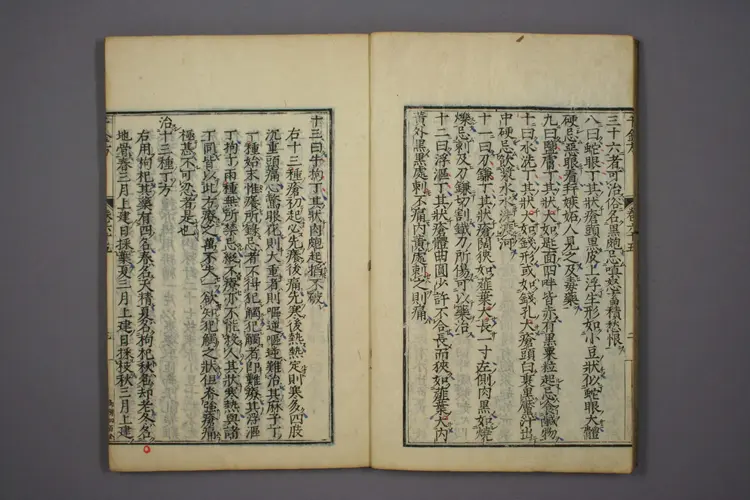 三十六者可治俗名黑皰忌嗔怒蓄積愁恨
八曰蛇眼丁其狀瘡頭黑皮上浮生形如小豆狀似蛇眼大體
硬忌惡眼看并嫉妬人見之及毒藥
九曰鹽膚丁其狀大如匙面四畔皆亦有黑粟粒起忌食鹹物
十曰水洗丁其狀大如錢形或如錢孔大瘡頭白裏黑靨汁出
中硬忌飲漿水水洗渡河
十一曰刀鎌丁其狀瘡闊狹如薤葉大長一寸左側肉黑如燒
爍忌刺及刀鎌切割鐵刀所傷可以藥治
十二曰浮漚丁其狀瘡體曲圓少許不合長而狹如薤葉大內
黃外黑黑處刺不痛內黃處刺之則痛
十三曰牛拘丁其狀肉皰起掐不破
右十三種瘡初起必先癢後痛先寒後熱熱定則寒多四肢
沉重頭痛心驚眼花則大重者則嘔逆嘔逆難治其麻子丁
丁種始末惟癢所錄忌者不得犯觸犯觸者即難療其浮漚
丁拘丁兩種無所禁忌縱不療亦不能殺人其狀寒熱與諸
丁同皆以此方療之萬不失一欲知犯觸之狀但脊強瘡痛
極甚不可忍者是也
治十三種丁方
右用枸杞其藥有四名春名天精夏名枸杞秋名却老冬名
地骨春三月上建日採葉夏三月上建日採枝秋三月上建